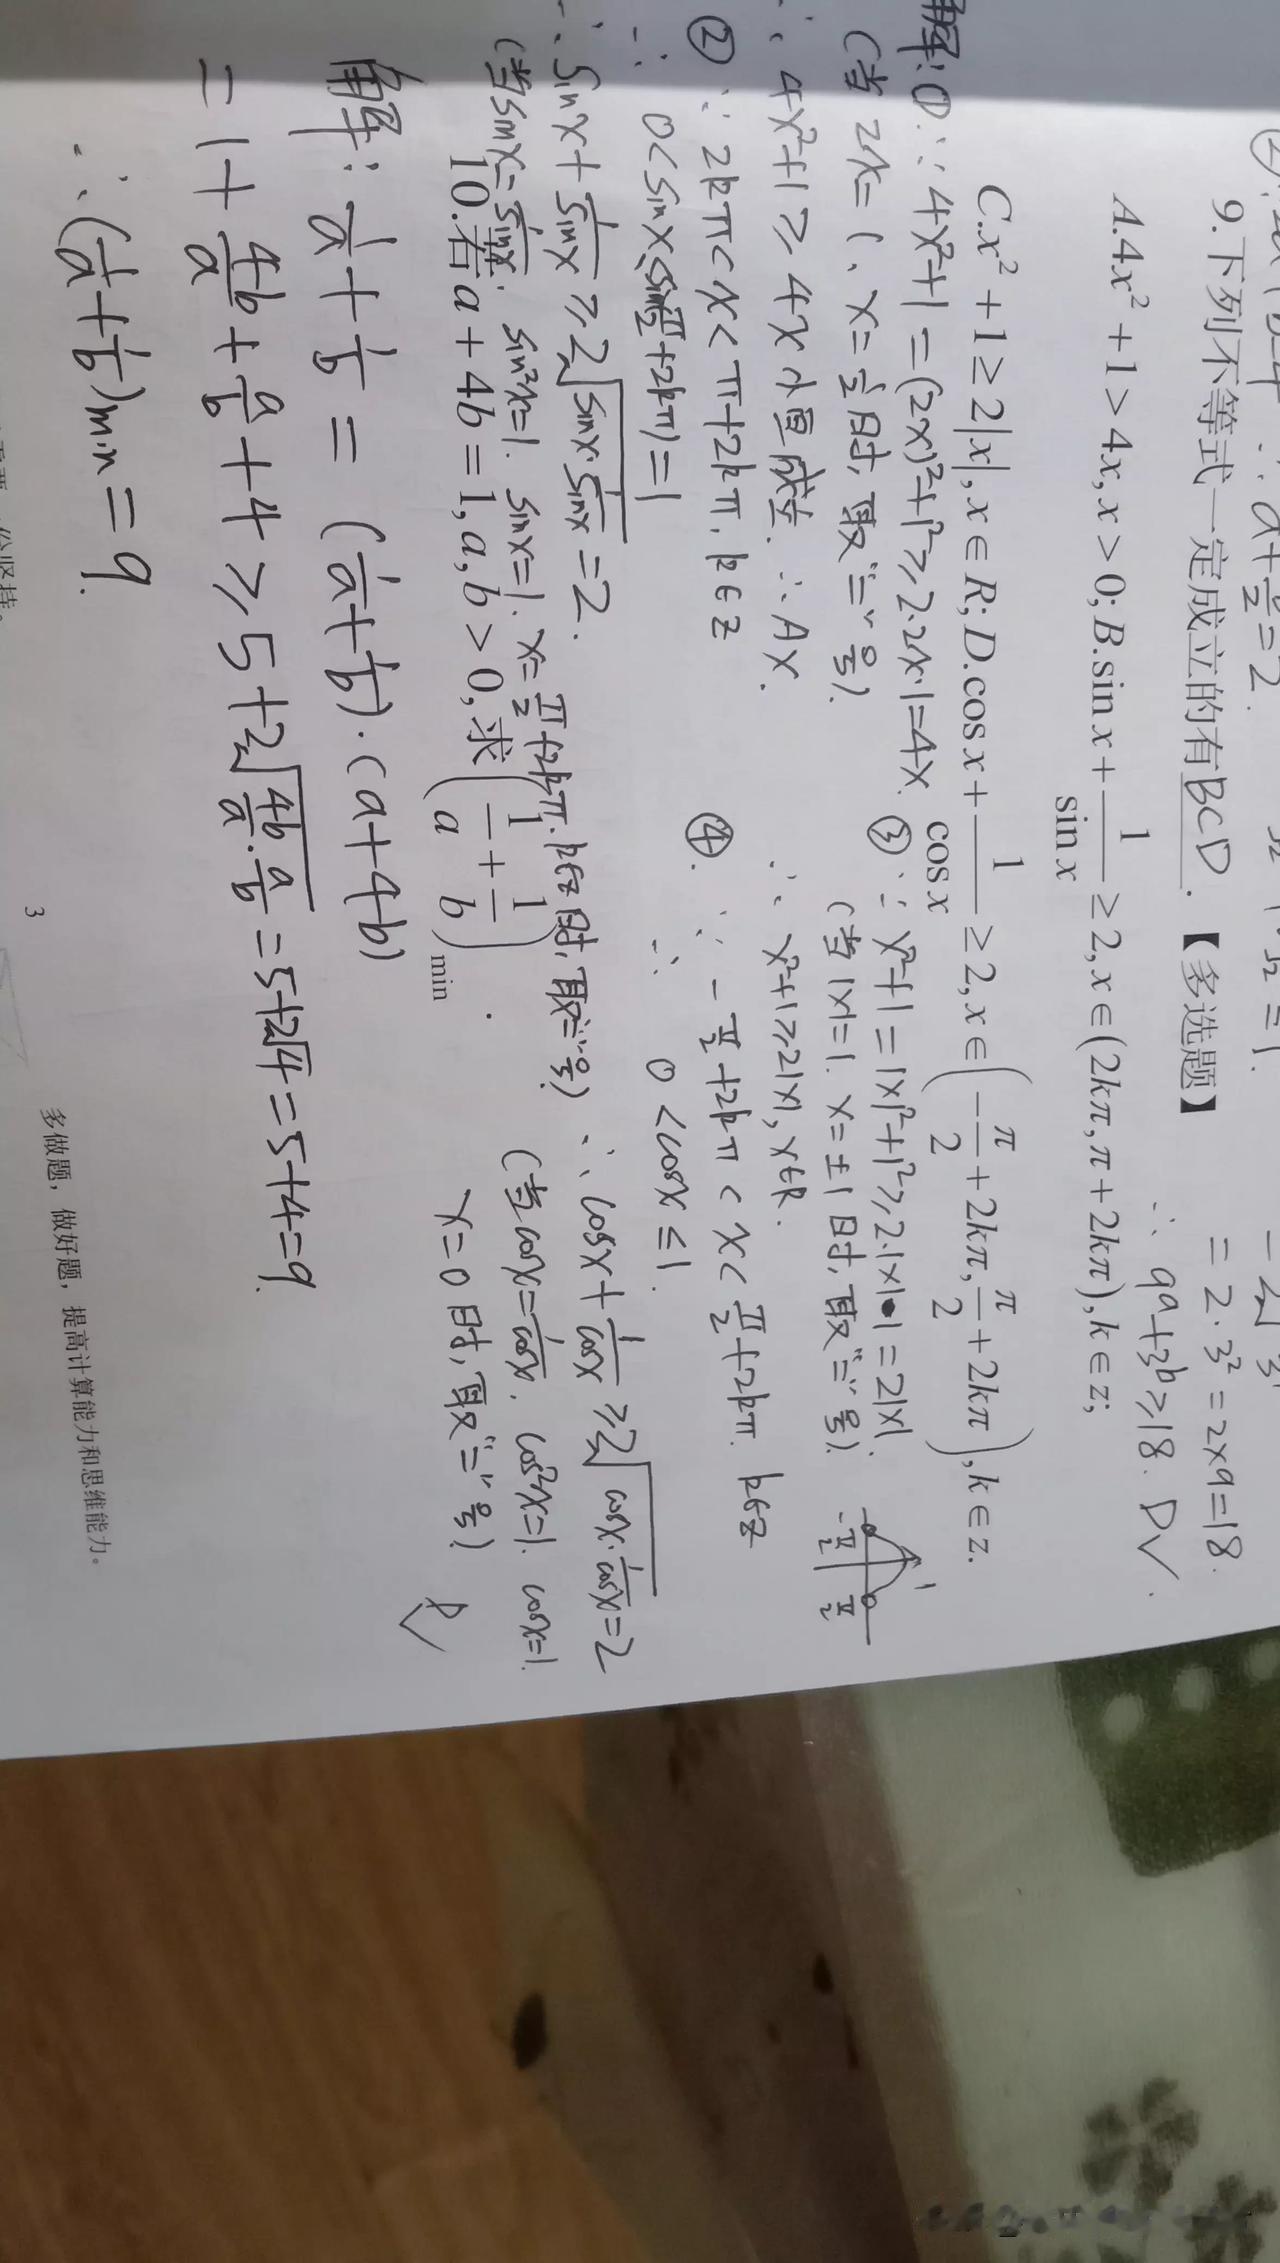 ∴ a + b/2 = 2.
= 2·3² = 2×9 = 18.
∴ 9ᵃ+3ᵇ ≥ 18. D√.
9.下列不等式一定成立的有BCD.【多选题】
A.4x² + 1 > 4x, x > 0; B.sin x + 1/sin x ≥ 2, x ∈ (2kπ, π + 2kπ), k ∈ z;
C.x² + 1 ≥ 2|x|, x ∈ R; D.cos x + 1/cos x ≥ 2, x ∈ (-π/2 + 2kπ, π/2 + 2kπ), k ∈ z.
解:①∵ 4x²+1 = (2x)²+1² ≥ 2·2x·1=4x
(当 2x=1、x=1/2时,取"="号).
∴ 4x²+1 ≥ 4x 恒成立. ∴ A×.
② ∵ 2kπ < x < π+2kπ. k∈z
∴ 0<sinx≤sin(π/2+2kπ)=1
∴ sinx + 1/sinx ≥ 2√(sinx·1/sinx) = 2.
(当sinx=1/sinx. sin²x=1. sinx=1. x=π/2+2kπ.k∈z时,取"="号)
③ ∵ x²+1 = |x|²+1² ≥ 2·|x|·1 = 2|x|.
(当|x|=1. x=±1时,取"="号).
∴ x²+1≥2|x|, x∈R.
-π/2 π/2 1
④. ∵ -π/2+2kπ < x < π/2+2kπ. k∈z
∴ 0<cosx ≤ 1.
∴ cosx + 1/cosx ≥ 2√(cosx·1/cosx) = 2
(当cosx=1/cosx. cos²x=1. cosx=1.
x=0时,取"="号)
10.若a + 4b = 1, a, b > 0, 求(1/a + 1/b)min.
解: 1/a + 1/b = (1/a + 1/b)·(a+4b)
= 1 + 4b/a + a/b + 4 ≥ 5+2√(4b/a·a/b) = 5+2√4 = 5+4=9.
∴ (1/a + 1/b)min = 9.
3
多做题,做好题,提高计算能力和思维能力。